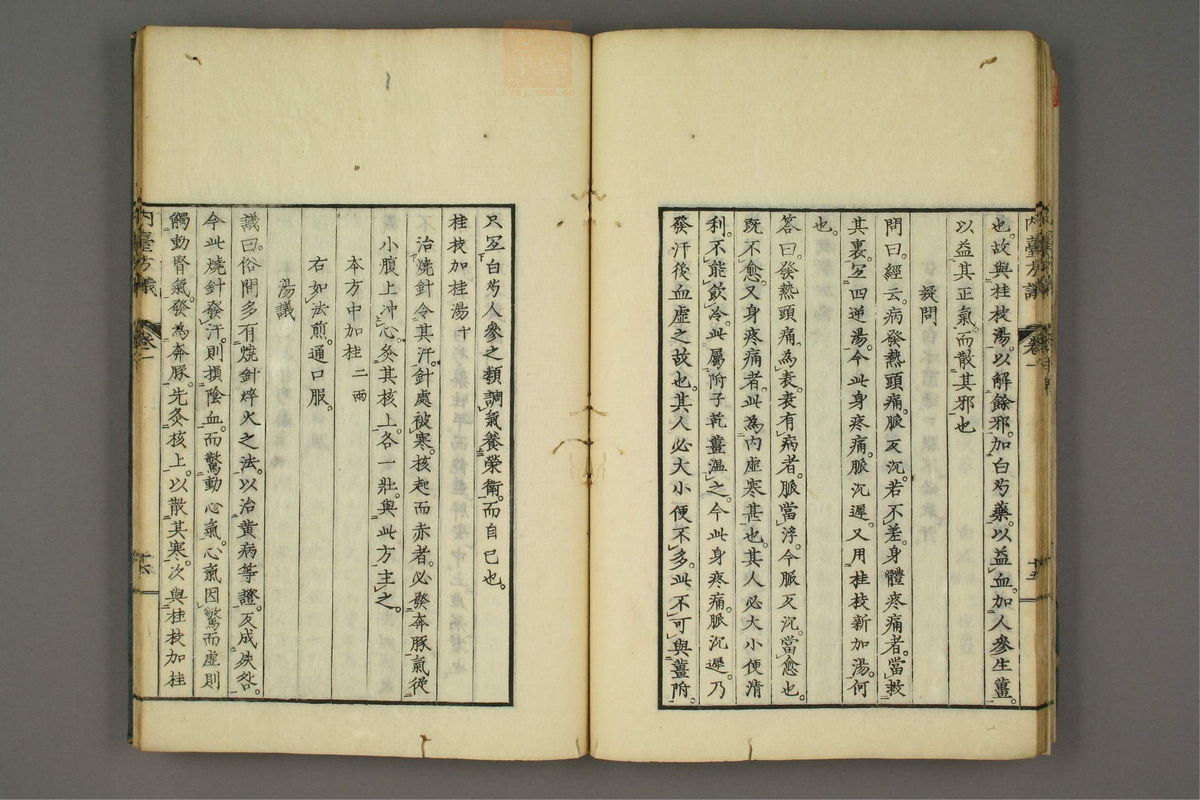 也。故與桂枝湯。以解餘邪。加白芍藥。以益血。加人參生薑。
以益其正氣。而散其邪也
疑問
問曰。經云。病發熱頭痛。脈反沉。若不差。身體疼痛者。當救
其裏。宜四逆湯。今此身疼痛。脈沉遲。又用桂枝新加湯。何
也。
答曰。發熱頭痛。為表。表有病者。脈當浮。今脈反沉。當愈也。
既不愈。又身疼痛者。此為內虛寒甚也。其人必大小便清
利。不能飲冷。此屬附子乾薑溫之。今此身疼痛。脈沉遲。乃
發汗後血虛之故也。其人必大小便不多。此不可與薑附。
內臺方議
卷一
十五
只宜白芍人參之類。調氣養榮衛。而自已也。
桂枝加桂湯十
治燒針令其汗。針處被寒。核起而赤者。必發奔豚氣從
小腹上沖心。灸其核上。各一壯。與此方主之。
本方中加桂二兩
右如法煎。通口服。
湯議
議曰。俗間多有燒針焠火之法。以治黃病等證。反成殃咎。
今此燒針發汗。則損陰血。而驚動心氣。心氣因驚而虛則
觸動腎氣。發為奔豚。先灸核上。以散其寒。次與桂枝加桂
內臺方議
卷一
十六